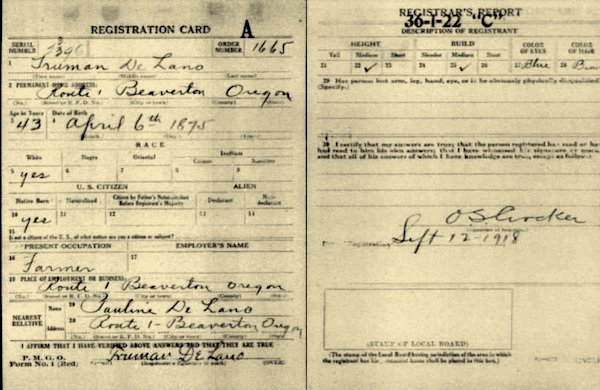 REGISTRATION CARD A
SERIAL NUMBER
ORDER NUMBER 1665
1 Truman De Lano
(First name) (Middle name) (Last name)
2 PERMANENT HOME ADDRESS:
Route 1 Beaverton Oregon
(No.) (Street or R. F. D. No.) (City or town) (County) (State)
Age in Years Date of Birth
3 43 4 April 6th 1875
RACE
White Negro Oriental Indian
Citizen Noncitizen
5 yes 6 7 8 9
U. S. CITIZEN ALIEN
Native Born Naturalized Citizen by Father's Naturalization Before Registrant's Majority Declarant Non-declarant
10 yes 11 12 13 14
15 If not a citizen of the U. S., of what nation are you a citizen or subject?
PRESENT OCCUPATION EMPLOYER'S NAME
16 Farmer 17
18 PLACE OF EMPLOYMENT OR BUSINESS:
Route 1 Beaverton Oregon
(No.) (Street or R. F. D. No.) (City or town) (County) (State)
NEAREST RELATIVE
Name 19 Pauline De Lano
Address 20 Route 1 - Beaverton Oregon
(No.) (Street or R. F. D. No.) (City or town) (County) (State)
I AFFIRM THAT I HAVE VERIFIED ABOVE ANSWERS AND THAT THEY ARE TRUE
P. M. G. O.
Form No. 1 (Red) Truman De Lano (OVER)
REGISTRAR'S REPORT
36-1-22 "C"
DESCRIPTION OF REGISTRANT
HEIGHT BUILD COLOR OF EYES COLOR OF HAIR
Tall Medium Short Slender Medium Stout
21 22 ✓ 23 24 25 ✓ 26 27 Blue 28
29 Has person lost arm, leg, hand, eye, or is he obviously physically disqualified?
(Specify.)
30 I certify that my answers are true; that the person registered has read or has
had read to him his own answers; that I have witnessed his signature or mark,
and that all of his answers of which I have knowledge are true, except as follows:
O S Crocker
(Signature of Registrar)
Registration Sept 12-1918
(STAMP OF LOCAL BOARD)
(The stamp of the Local Board having jurisdiction of the area in which
the registrant has his permanent home shall be placed in this box.)